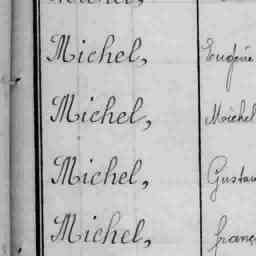 Michel, Eugénie
Michel, Michel
Michel, Gustav
Michel, franç